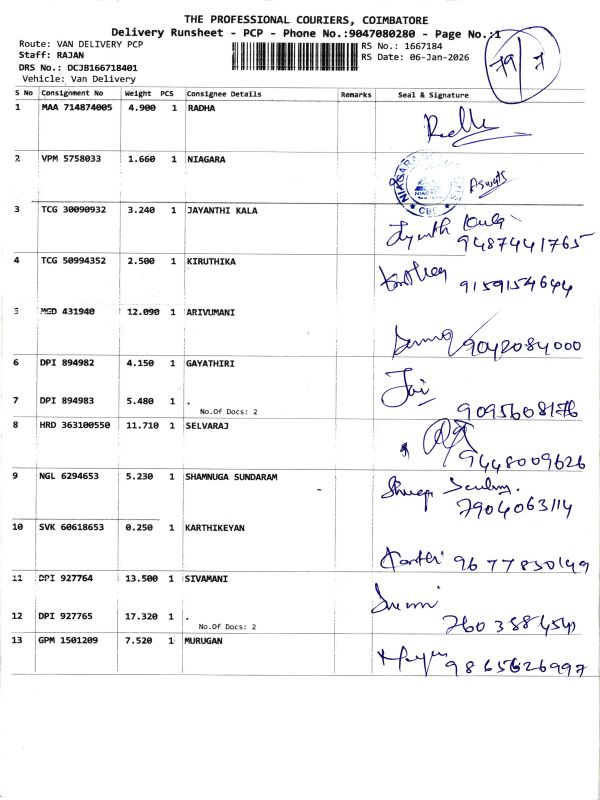 THE PROFESSIONAL COURIERS, COIMBATORE
Delivery Runsheet - PCP - Phone No.:9047080280 - Page No.:1
Route: VAN DELIVERY PCP
Staff: RAJAN
DRS No.: DCJB166718401
Vehicle: Van Delivery
RS No.: 1667184
RS Date: 06-Jan-2026
79/7
S No Consignment No Weight PCS Consignee Details Remarks Seal & Signature
1 MAA 714874005 4.900 1 RADHA
2 VPM 5758033 1.660 1 NIAGARA
3 TCG 30090932 3.240 1 JAYANTHI KALA
9487441765
4 TCG 50994352 2.500 1 KIRUTHIKA
9159154644
5 MGD 431940 12.090 1 ARIVUMANI
9042084000
6 DPI 894982 4.150 1 GAYATHIRI
Jai
7 DPI 894983 5.480 1 .
No.Of Docs: 2
9095608176
8 HRD 363100550 11.710 1 SELVARAJ
9448009626
9 NGL 6294653 5.230 1 SHAMNUGA SUNDARAM
7904063114
10 SVK 60618653 0.250 1 KARTHIKEYAN
Karthi 9677830149
11 DPI 927764 13.500 1 SIVAMANI
12 DPI 927765 17.320 1 .
No.Of Docs: 2
13 GPM 1501209 7.520 1 MURUGAN
9865626997